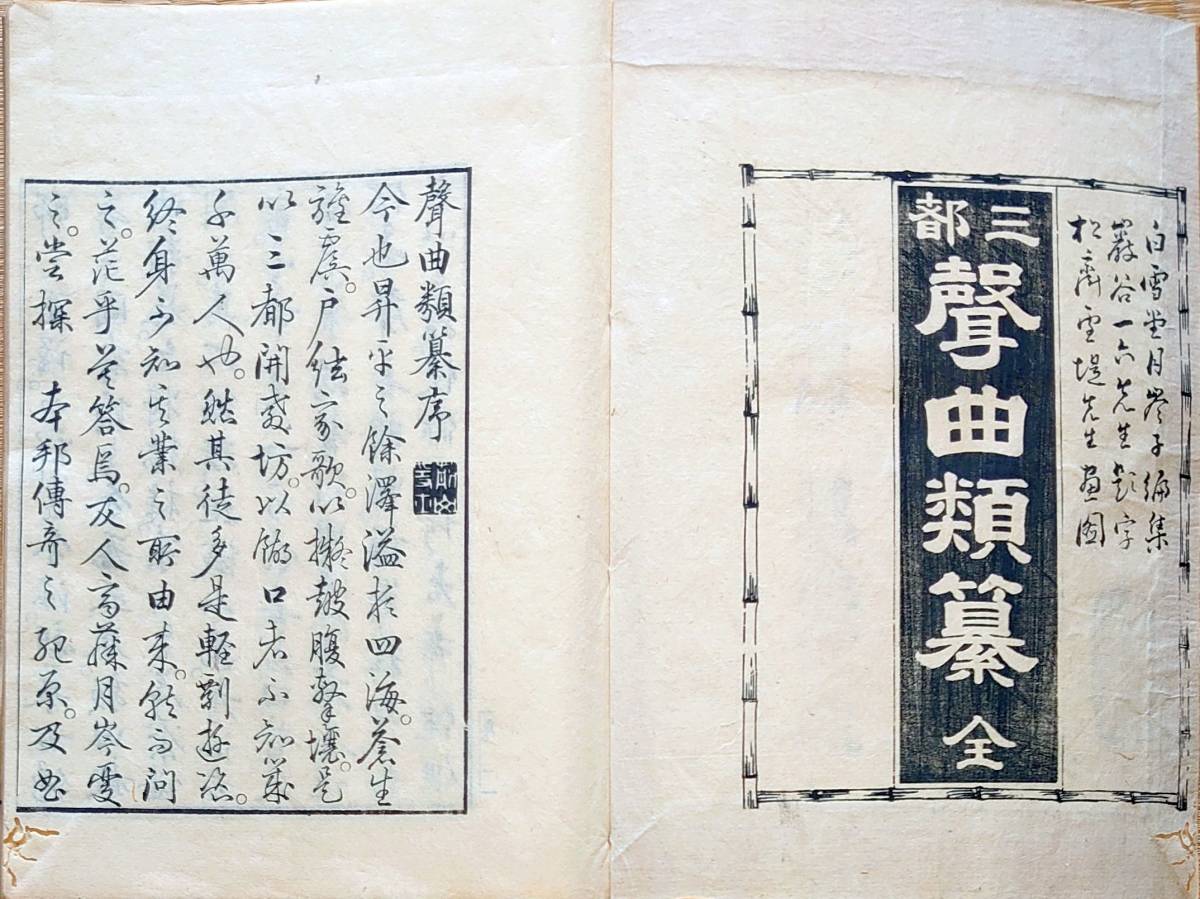 白雪堂月岑子編集
巖谷一六先生題字
松齋雪堤先生画図
三都
聲曲類纂 全
聲曲類纂序
今也昇平之餘澤溢於四海。蒼生
驩虞。戸絃家歌。以擬鼓腹撃壤。是
以三都開教坊。以餬口者不知幾
千萬人也。然其徒多是輕剽遊冶。
終身不知其業之所由来。就而問
之。茫乎莫答焉。友人斎藤月岑憂
之。嘗探 本邦傳奇之起原。及如